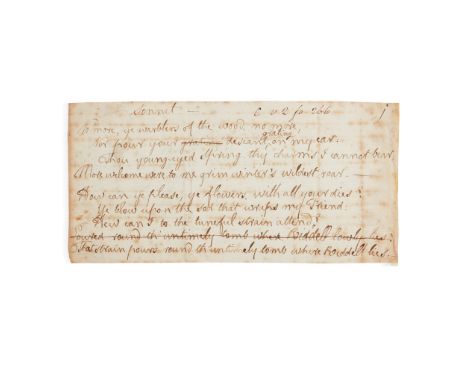 Sonnet — C v 2 p 266 1
No more, ye warblers of the wood, no more,
grating
Nor pour your grating descant on my ear:
Thou young-eyed Spring thy charms I cannot bear,
More welcome were to me grim winter's wildest roar. —
How can ye please, ye flowers, with all your dies?
Ye blow upon the sod that wraps my friend:
How can I to the tuneful strain attend?
Poured round th' untimely tomb where Riddell lowly lies:
That strain pours round th' untimely tomb where Riddell lies.